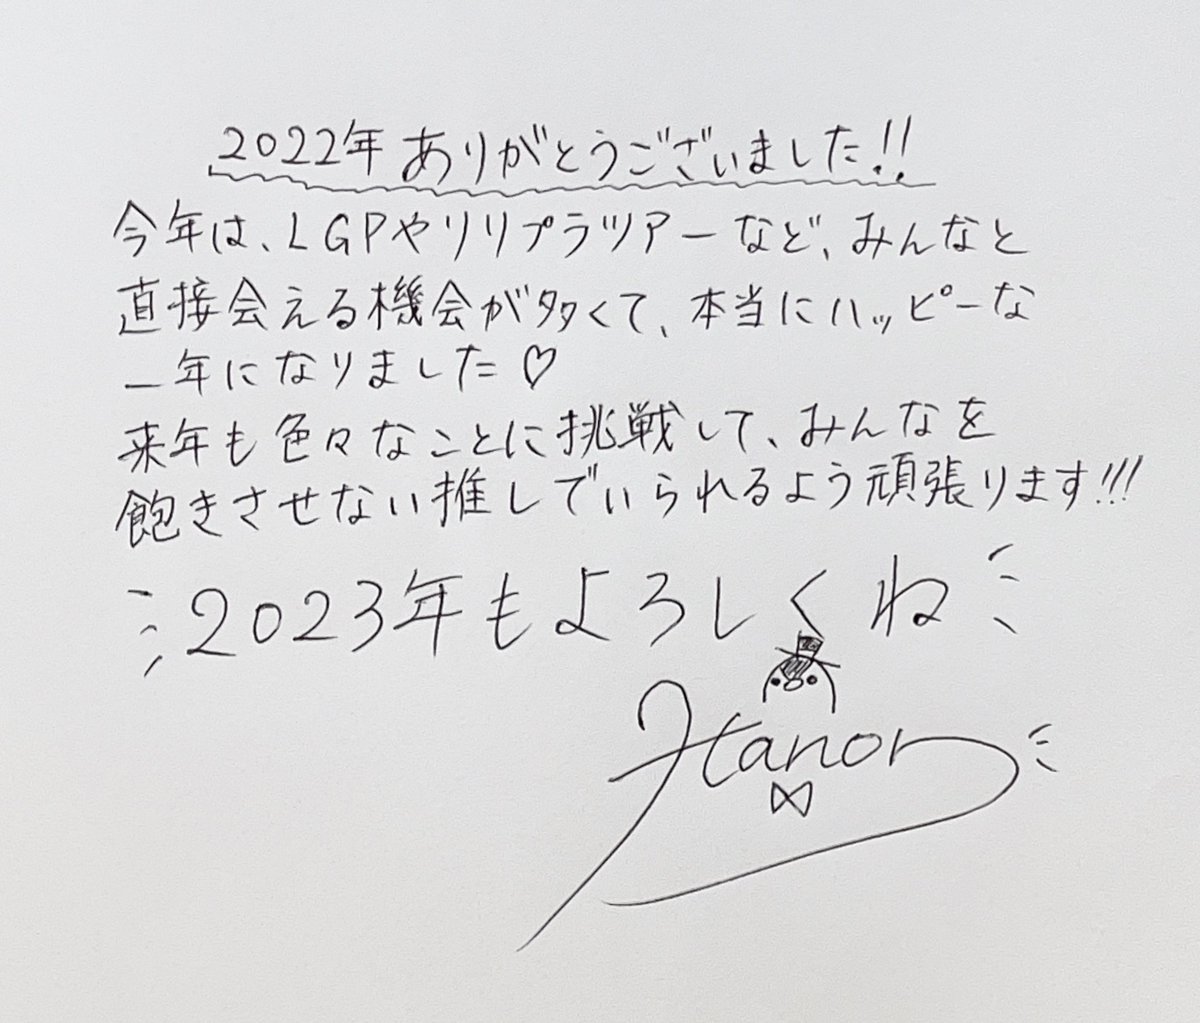 2022年ありがとうございました!!
今年は、LGPやリリプラツアーなど、みんなと
直接会える機会が多くて、本当にハッピーな
一年になりました♡
来年も色々なことに挑戦して、みんなを
飽きさせない推しでいられるよう頑張ります!!!
2023年もよろしくね
Hanon